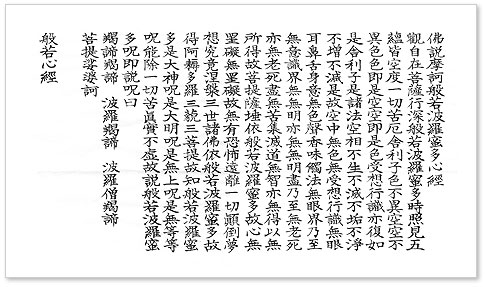 佛說摩訶般若波羅蜜多心經
觀自在菩薩行深般若波羅蜜多時照見五
蘊皆空度一切苦厄舍利子色不異空空不
異色色即是空空即是色受想行識亦復如
是舍利子是諸法空相不生不滅不垢不淨
不增不減是故空中無色無受想行識無眼
耳鼻舌身意無色聲香味觸法無眼界乃至
無意識界無無明亦無無明盡乃至無老死
亦無老死盡無苦集滅道無智亦無得以無
所得故菩提薩埵依般若波羅蜜多故心無
罣礙無罣礙故無有恐怖遠離一切顛倒夢
想究竟涅槃三世諸佛依般若波羅蜜多故
得阿耨多羅三藐三菩提故知般若波羅蜜
多是大神呪是大明呪是無上呪是無等等
呪能除一切苦眞實不虛故說般若波羅蜜
多呪即說呪曰
揭諦揭諦　波羅揭諦　波羅僧揭諦
菩提娑婆訶
般若心經